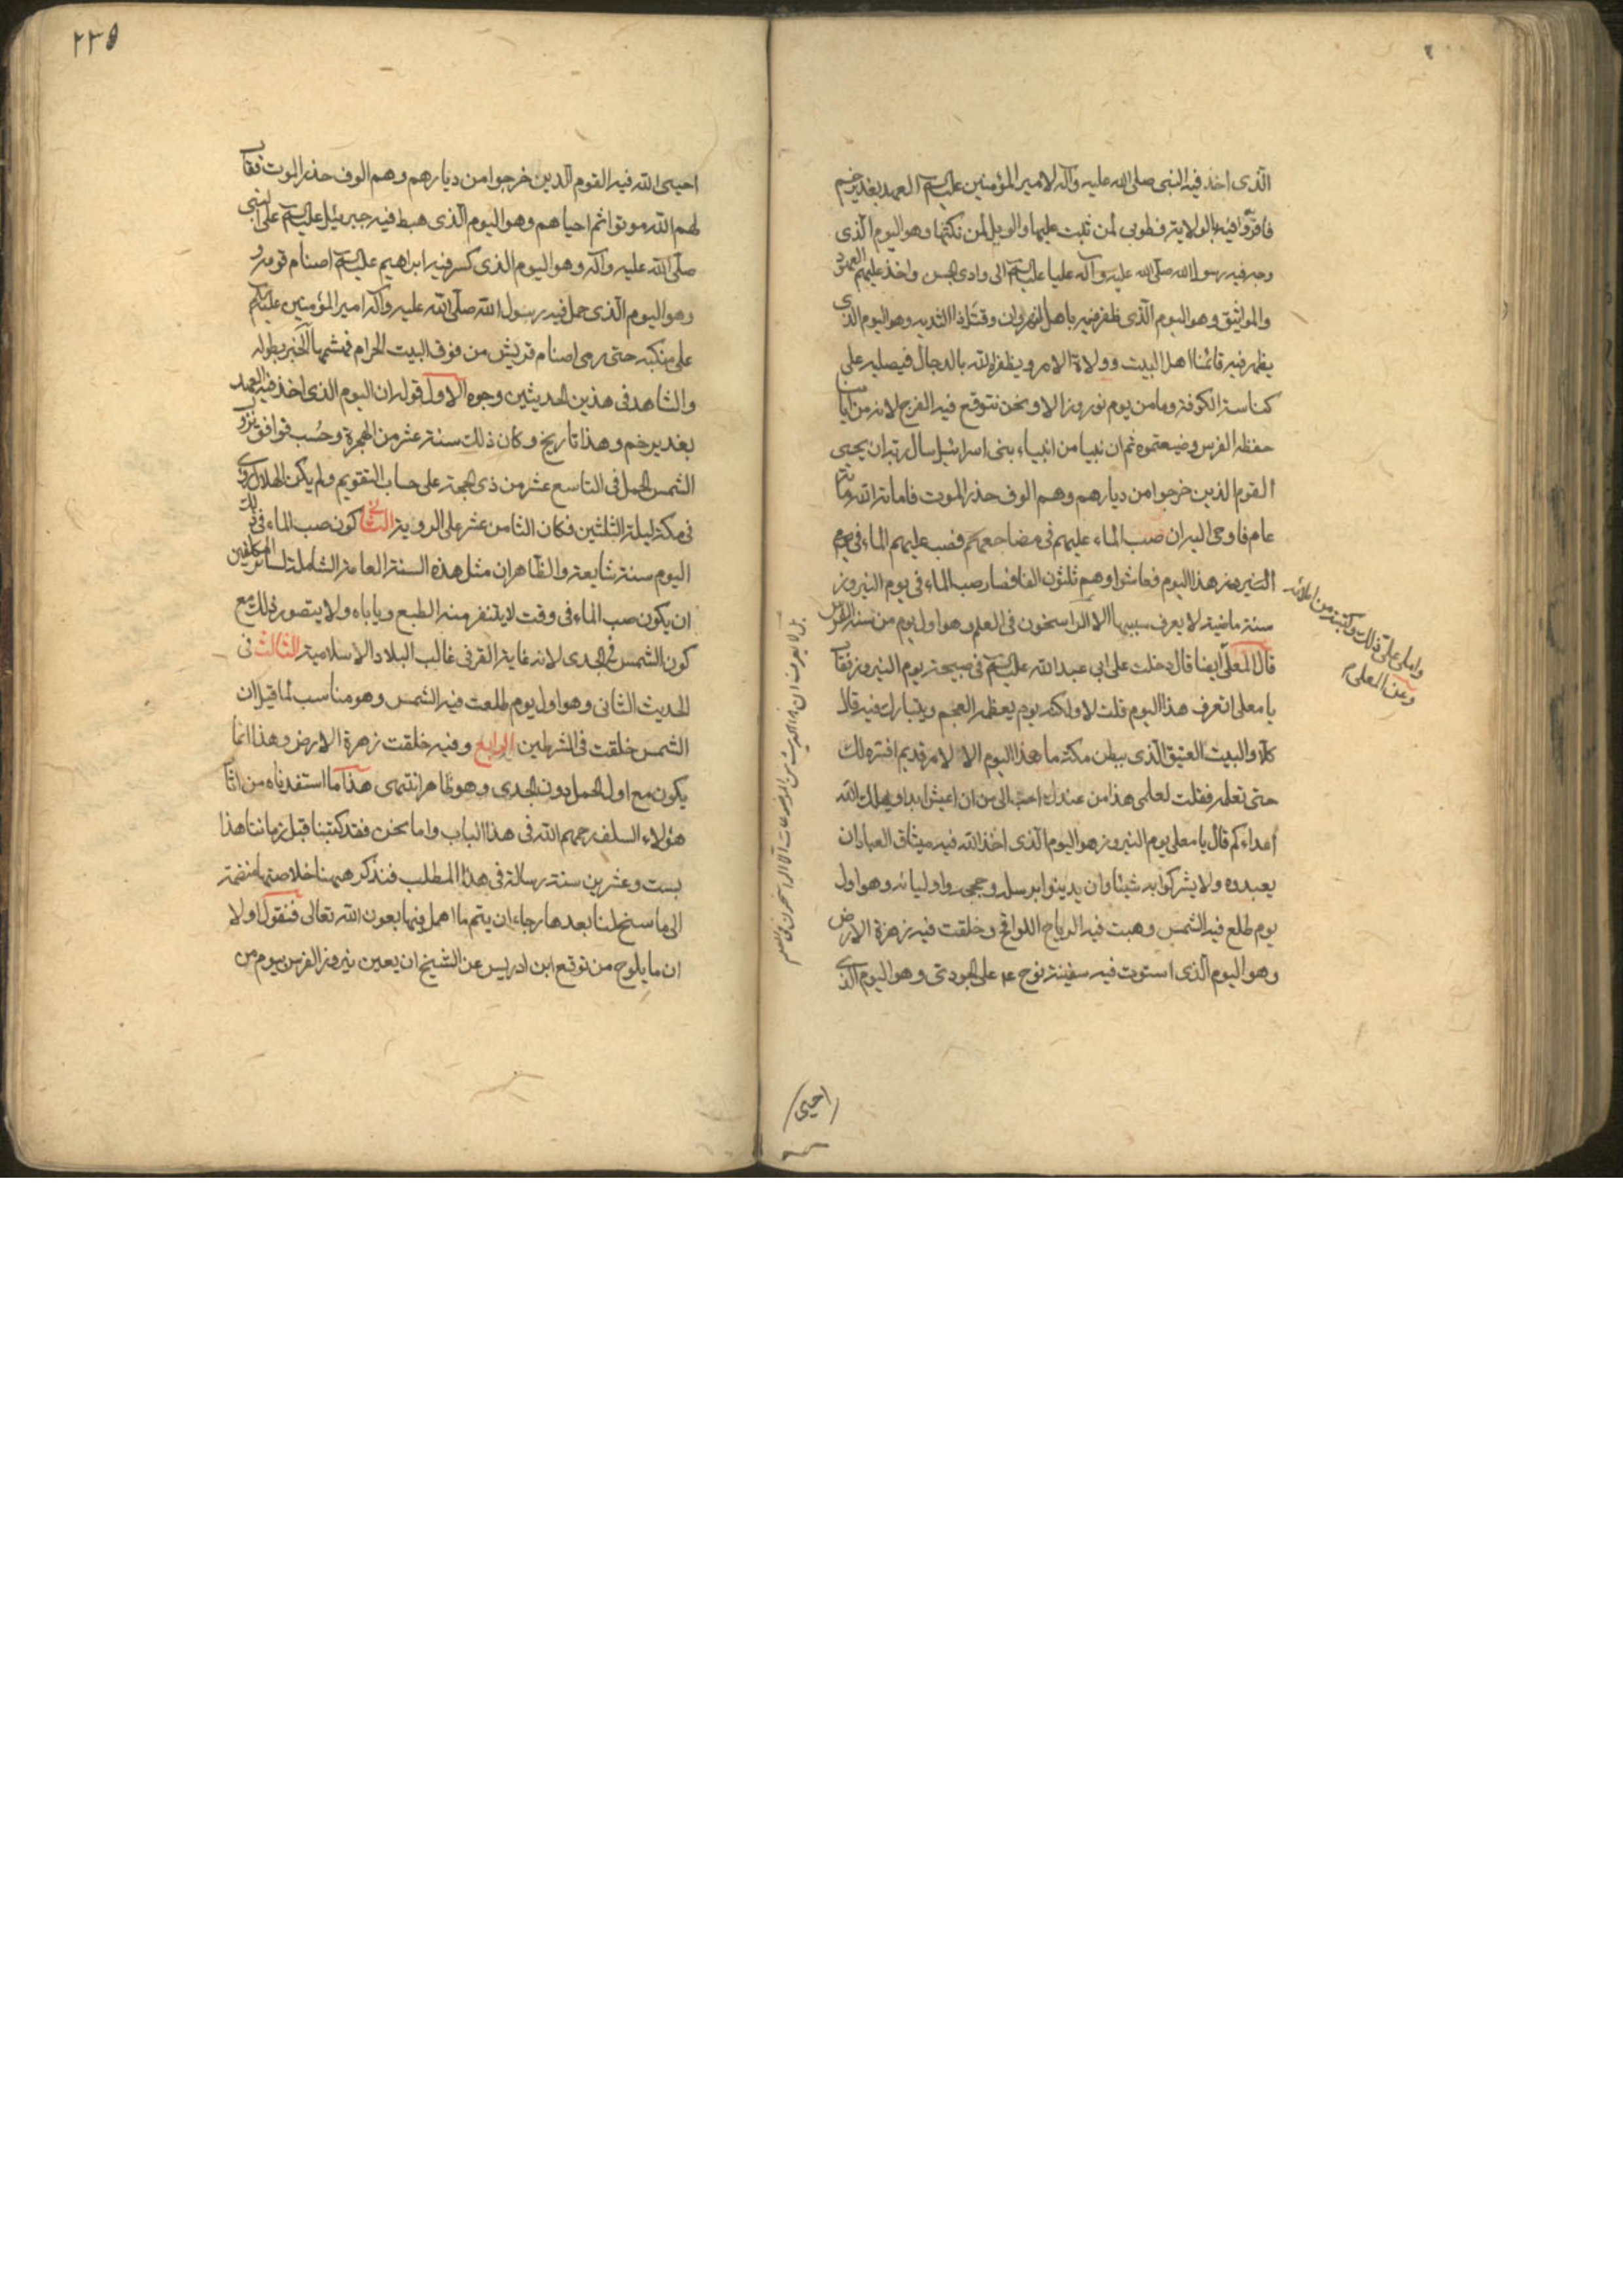 الذى اخذ فيه النبى صلى الله عليه وآله لامير المؤمنين عليه السلم العهد بغدير خم
فاقروا فيه بالولاية فطوبى لمن ثبت عليها والويل لمن نكثها وهو اليوم الذى
وجه فيه رسول الله صلى الله عليه وآله عليا عليه السلم الى وادى الجن واخذ عليهم العهود
والمواثيق وهو اليوم الذى ظفر فيه باهل النهروان وقتل ذا الثديه وهو اليوم الذى
يظهر فيه قائمنا اهل البيت وولاة الامر ويظفره الله بالدجال فيصلبه على
كناسة الكوفة وما من يوم نوروز الا ونحن نتوقع فيه الفرج لانه من ايامنا
حفظه الفرس وضيعتموه ثم ان نبيا من انبياء بنى اسرائيل سال ربه ان يحيى
القوم الذين خرجوا من ديارهم وهم الوف حذر الموت فاماتهم الله
عام فاوحى اليه ان صب الماء عليهم فى مضاجعهم فصب عليهم الماء فى يوم
هذا اليوم فعاشوا وهم ثلثون الفا فصار صب الماء فى يوم النيروز
سنة ماضية لا يعرف سببها الا الراسخون فى العلم وهو اول يوم من سنة الفرس
قال المعلى ايضا قال دخلت على ابى عبد الله عليه السلم فى صبيحة يوم النيروز فقال
يا معلى اتعرف هذا اليوم قلت لا ولكنه يوم يعظمه العجم ويتبارك فيه قال
كلا والبيت العتيق الذى ببطن مكة ما هذا اليوم الا لامر قديم افسره لك
حتى تعلمه فقلت لعلمى هذا من عندك احب الى من ان اعيش ابدا ويهلك الله
اعداءكم قال يا معلى يوم النيروز هو اليوم الذى اخذ الله فيه ميثاق العباد ان
يعبدوه ولا يشركوا به شيئا وان يدينوا برسله وحججه واوليائه وهو اول
يوم طلع فيه الشمس وهبت فيه الرياح اللواقح وخلقت فيه زهرة الارض
وهو اليوم الذى استوت فيه سفينة نوح ع على الجودى وهو اليوم الذى
واملى على ذلك وكتبته من املائه
وعن المعلى
احيى
٢٣٥
احيى الله فيه القوم الذين خرجوا من ديارهم وهم الوف حذر الموت فقال
لهم الله موتوا ثم احياهم وهو اليوم الذى هبط فيه جبرئيل عليه السلم على النبى
صلى الله عليه وآله وهو اليوم الذى كسر فيه ابراهيم عليه السلم اصنام قومه
وهو اليوم الذى حمل فيه رسول الله صلى الله عليه وآله امير المؤمنين عليه السلم
على منكبه حتى رمى اصنام قريش من فوق البيت الحرام فهشمها الخبر بطوله
والشاهد فى هذين الحديثين وجوه الاول قوله ان اليوم الذى اخذ فيه العهد
بغدير خم وهذا تاريخ وكان ذلك سنة عشر من الهجرة وحسب فوافق نزول
الشمس الحمل فى التاسع عشر من ذى الحجة على حساب التقويم ولم يكن الهلال رئى
فى مكة ليلة الثلثين فكان الثامن عشر على الروية الثانى كون صب الماء فى ذلك
اليوم سنة شايعة والظاهر ان مثل هذه السنة العامة الشاملة لسائر المكلفين
ان يكون صب الماء فى وقت لا يتنفر منه الطبع وياباه ولا يتصور ذلك مع
كون الشمس فى الجدى لانه غاية القر فى غالب البلاد الاسلامية الثالث فى
الحديث الثانى وهو اول يوم طلعت فيه الشمس وهو مناسب لما قيل ان
الشمس خلقت فى الشرطين الرابع وفيه خلقت زهرة الارض وهذا انما
يكون مع اول الحمل دون الجدى وهو ظاهر انتهى هذا ما استفدناه من
هؤلاء السلف رحمهم الله فى هذا الباب واما نحن فقد كتبنا قبل زماننا هذا
بست وعشرين سنة رسالة فى هذا المطلب فنذكر ههنا خلاصتها منضمة
الى ما سنح لنا بعدها رجاء ان يتم ما اهمل فيها بعون الله تعالى فنقول اولا
ان ما يلوح من توقع ابن ادريس عن الشيخ ان يعين نيروز الفرس بيوم من